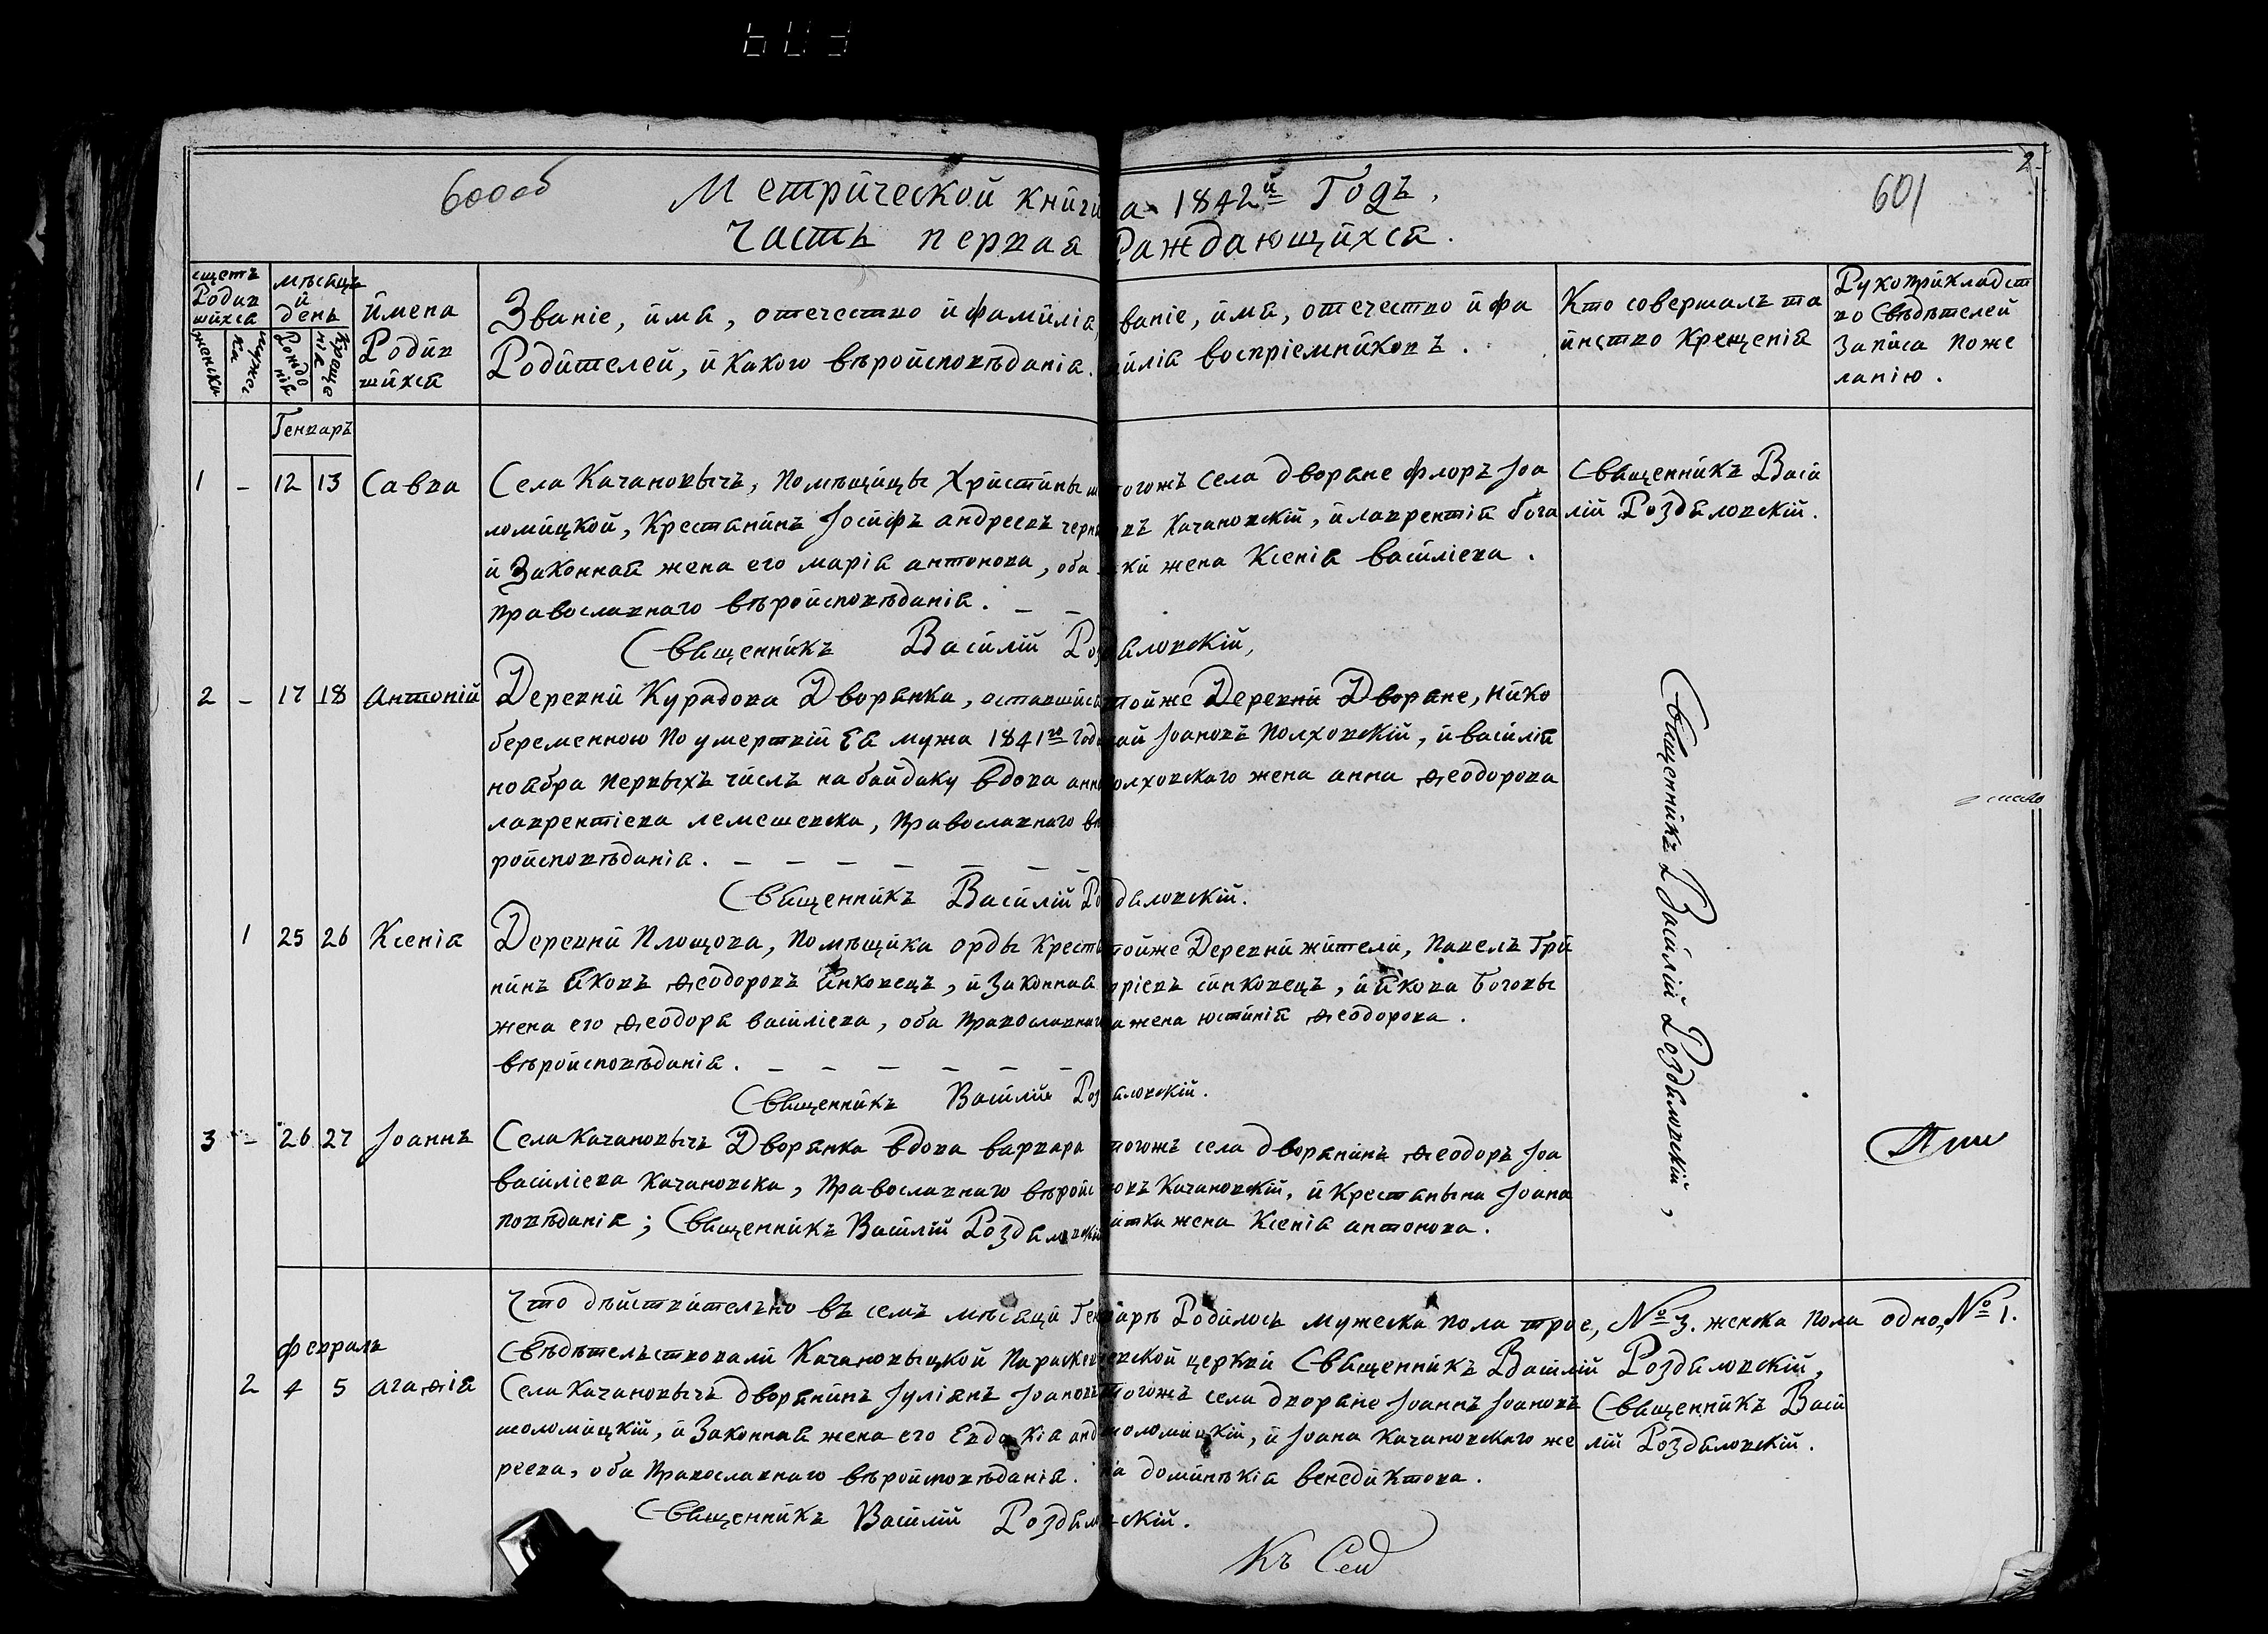 600об
Метрической книги на 1842й Годъ.
601
2
Часть первая Раждающихся.
сщетъ Родившихся
мужеска
женска
мѣсяцъ и день
Рождения
Крещения
Имена Родившихся
Званіе, имя, отечество и фамилія
Родителей, и какого вѣроисповѣданія.
Званіе, имя, отечество и фамилія воспріемниковъ.
Кто совершалъ таинство Крещенія
Рукоприкладство Свѣдѣтелей записа по желанію.
Генваръ
1 - 12 13 Савва
Села Качановычъ, Помѣщицы Христины
ломицкой, Крестянинъ Іосифъ андреевъ
и Законная жена его марія антонова, оба
православнаго вѣроисповѣданія. - -
тогожъ села дворяне флоръ Іоа
новъ Качановскій, и лаврентія бога
жена Ксенія василіева.
Священникъ Васи
лій Роздяловскій.
Священникъ Василій Роздяловскій,
2 - 17 18 Антоній
Деревни Курадова Дворянка, оставшися
беременною по умертвій Ея мужа 1841го года
ноября первыхъ числъ на байдаку вдова анна
лаврентіева лемешевска, православнаго вѣ
роисповѣданія. - - - - - - -
тойже Деревни Дворяне, Нико
лай Іоановъ Полховскій, и василія
Полховскаго жена анна Ѳеодорова
Священникъ Василій Роздяловскій,
Священникъ Василій Роздяловскій.
1 25 26 Ксенія
Деревни Площова, помѣщика орды Крестя
нинъ Яковъ Ѳеодоровъ Синковецъ, и Законная
жена его Ѳеодора василіева, оба православнаго
вѣроисповѣданія. - - - - - -
тойже Деревни жители, Павелъ Гри
горіевъ синковецъ, и Якова Боговы
жена юстинія Ѳеодорова.
Священникъ Василій Роздяловскій.
3 - 26 27 Іоаннъ
Села Качановычъ Дворянка вдова варвара
василіева Качановска, православнаго вѣроис
повѣданія; Священникъ Василій Роздяловскій
тогожъ села дворянинъ Ѳеодоръ Іоа
новъ Качановскій, и Крестянына Іоана
жена Ксенія антонова.
Что дѣйствително въ семъ мѣсяци Генварѣ Родилось мужеска пола трое, №3. женска пола одно, №1.
Свѣдѣтелствовали Качановыцкой Параскевіевской церкви Священникъ Василій Роздяловскій,
февраль
2 4 5 агаѳія
Села Качановычъ дворянинъ Іуліянъ Іоановъ
шоломицкій, и Законная жена его Евдокія анд
реева, оба православнаго вѣроисповѣданія.
тогожъ села дворяне Іоаннъ Іоановъ
шоломицкій, и Іоана Качановскаго же
на доминѣкія венедиктова.
Священникъ Васи
лій Роздяловскій.
Священникъ Василій Роздяловскій.
Къ Сей